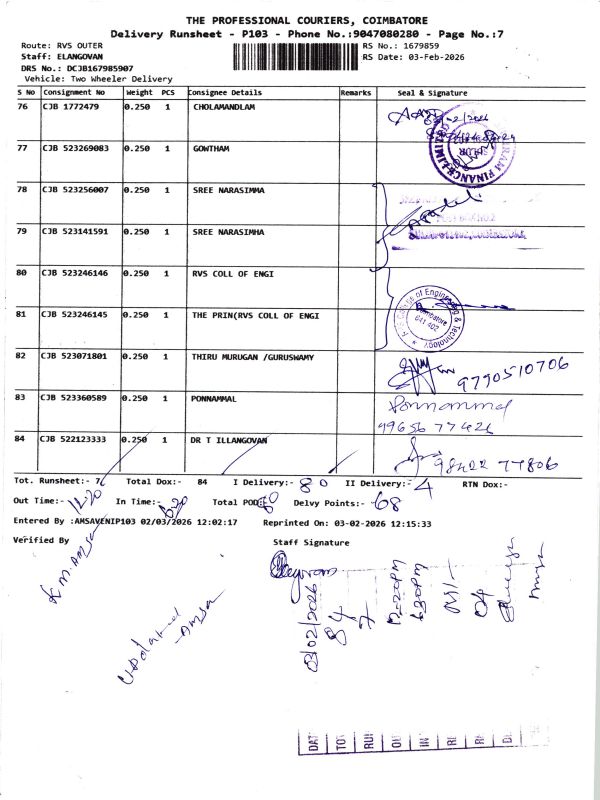 THE PROFESSIONAL COURIERS, COIMBATORE
Delivery Runsheet - P103 - Phone No.:9047080280 - Page No.:7
Route: RVS OUTER
RS No.: 1679859
Staff: ELANGOVAN
RS Date: 03-Feb-2026
DRS No.: DCJB167985907
Vehicle: Two Wheeler Delivery
S No Consignment No Weight PCS Consignee Details Remarks Seal & Signature
76 CJB 1772479 0.250 1 CHOLAMANDLAM
77 CJB 523269083 0.250 1 GOWTHAM
78 CJB 523256007 0.250 1 SREE NARASIMMA
79 CJB 523141591 0.250 1 SREE NARASIMHA
80 CJB 523246146 0.250 1 RVS COLL OF ENGI
81 CJB 523246145 0.250 1 THE PRIN(RVS COLL OF ENGI
82 CJB 523071801 0.250 1 THIRU MURUGAN /GURUSWAMY
9790510706
83 CJB 523360589 0.250 1 PONNAMMAL
Ponnammal
99656 77426
84 CJB 522123333 0.250 1 DR T ILLANGOVAN
98422 77806
Tot. Runsheet:- 7 Total Dox:- 84 I Delivery:- 80 II Delivery:- 4 RTN Dox:-
Out Time:- 12.20 In Time:- 6.20 Total POD:- 80 Delvy Points:- 68
Entered By :AMSAVENIP103 02/03/2026 12:02:17 Reprinted On: 03-02-2026 12:15:33
Verified By Staff Signature
03/02/2026
84
7
12-20PM
6.30PM
04
Updated
Amsa